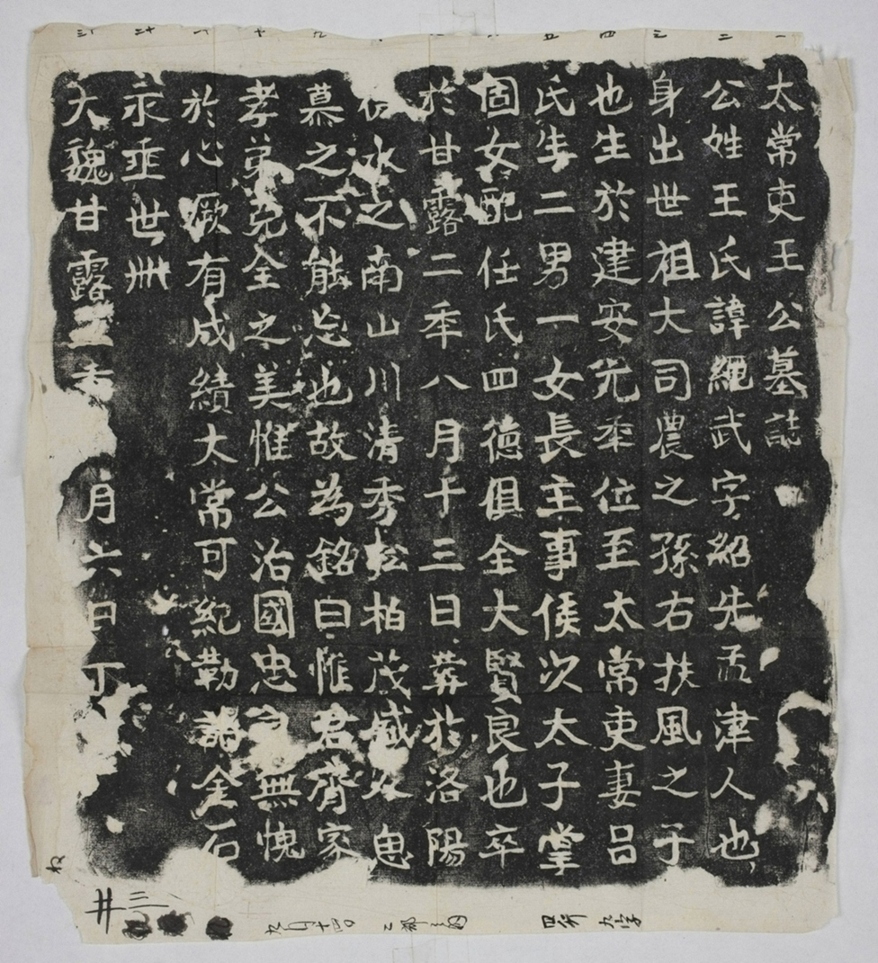 太常吏王公墓誌
公姓王氏諱繩武字紹先孟津人也
身出世祖大司農之孫右扶風之子
也生於建安元年位至太常吏妻呂
氏生二男一女長主事侯次太子掌
固女配任氏四德俱全大賢良也卒
於甘露二年八月十三日葬於洛陽
水之南山川清秀松柏茂感人思
慕之不能忘也故為銘曰惟君齊家
孝弟克全之美惟公治國忠無愧
於心厥有成績大常可紀勒諸金石
永垂世卌
大魏甘露 月六日丁